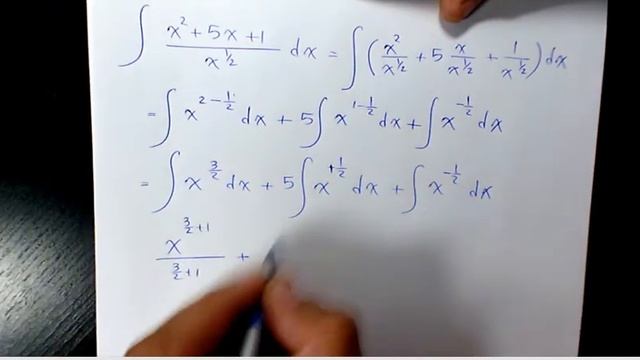 ∫ (x² + 5x + 1)/x^(1/2) dx = ∫ (x²/x^(1/2) + 5 x/x^(1/2) + 1/x^(1/2)) dx
= ∫ x^(2-1/2) dx + 5 ∫ x^(1-1/2) dx + ∫ x^(-1/2) dx
= ∫ x^(3/2) dx + 5 ∫ x^(+1/2) dx + ∫ x^(-1/2) dx
x^(3/2+1)/(3/2+1) +